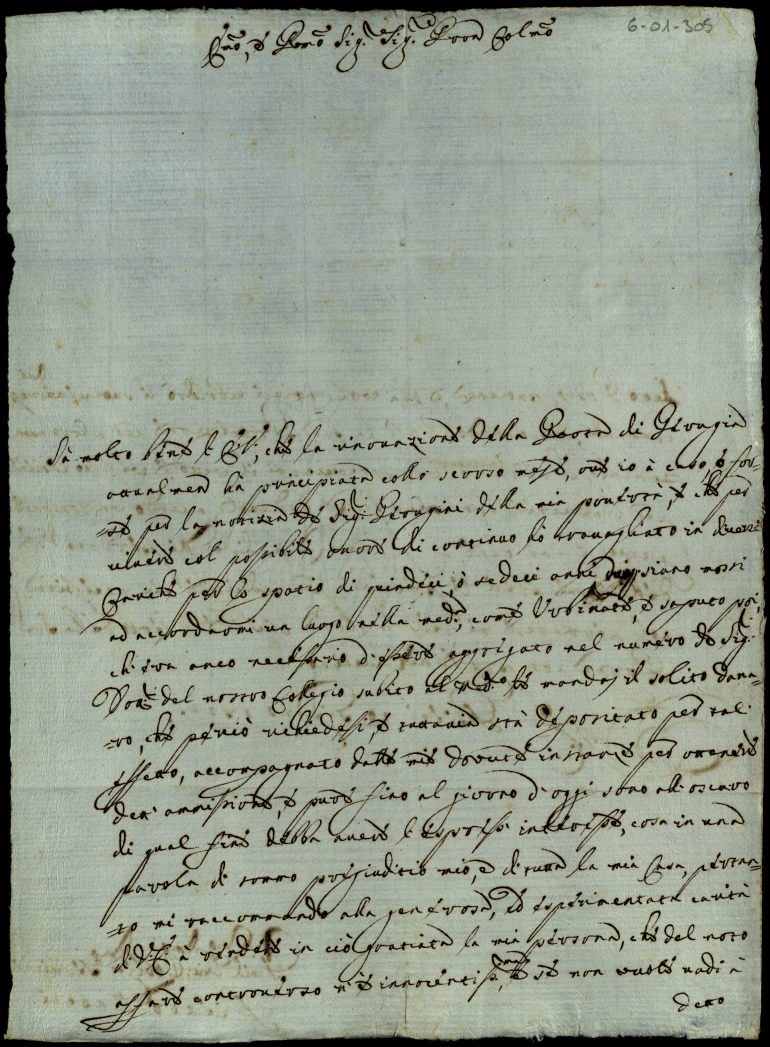 6-01-305
Em̃o, e Rm̃o Sig.r Sig.r Pron Colm̃o
Sà molto bene l'E.V., che la rinovazione della Rota di Perugia
attualmen hà principiata collo scorso mese, ove io à caso, e for-
=te per la notizia de Sig.ri Perugini della mia povertà, e che per
vivere col possibile onore di continuo hò travagliato in diverse
Cariche per lo spatio di quindici, ò sedeci anni, siano mossi
ad accordarmi un luogo nella med.a, come Urbinate, e saputo poi,
ch'era anco necessario d'essere aggregato nel numero de Sig.ri
Dott.ri del nostro Collegio subito al med.o le mandaj il solito dana-
=ro, che perciò richiedesi, e tuttavia stà depositato per tal'
effetto, accompagnato dalle mie dovute instanze per ottenere
den: ammissione, e pure fino al giorno d'oggi sono all'oscuro
di qual fine debba avere l'espresso interesse, cosa in una
parola di sommo pregiuditio mio, e di tutta la mia Casa, pertan-
=to mi raccommando alla generosa, ed esperimentata carità
di V.E. à rendere in ciò gratiata la mia persona, che del noto
affare controverso n'è innocentiss.ma, e se non vuole vadi à
detto